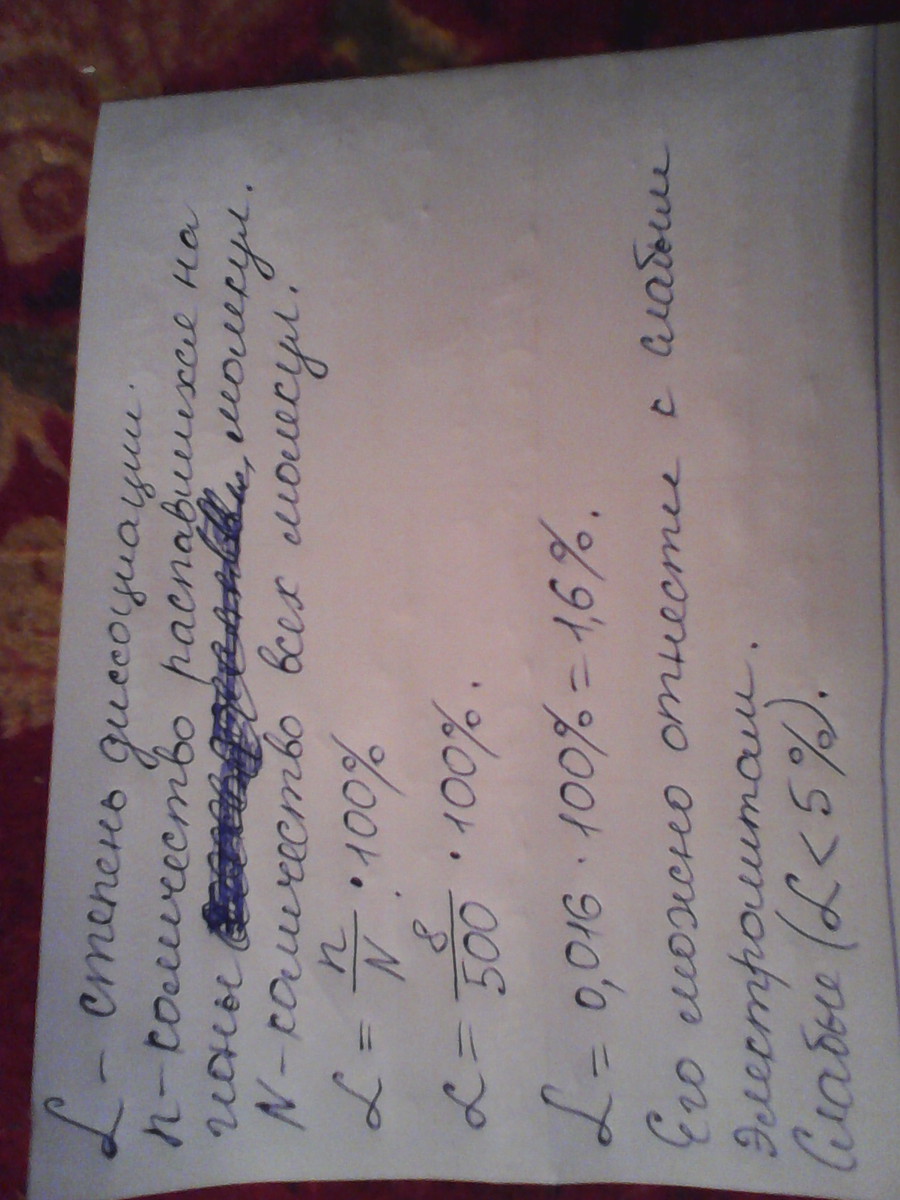 α – степень диссоциации.
n – количество распавшихся на
ионы молекул.
N – количество всех молекул.
α = n/N · 100%
α = 8/500 · 100%.
α = 0,016 · 100% = 1,6%.
Его можно отнести с слабым
электролитам.
Слабые (α < 5%).